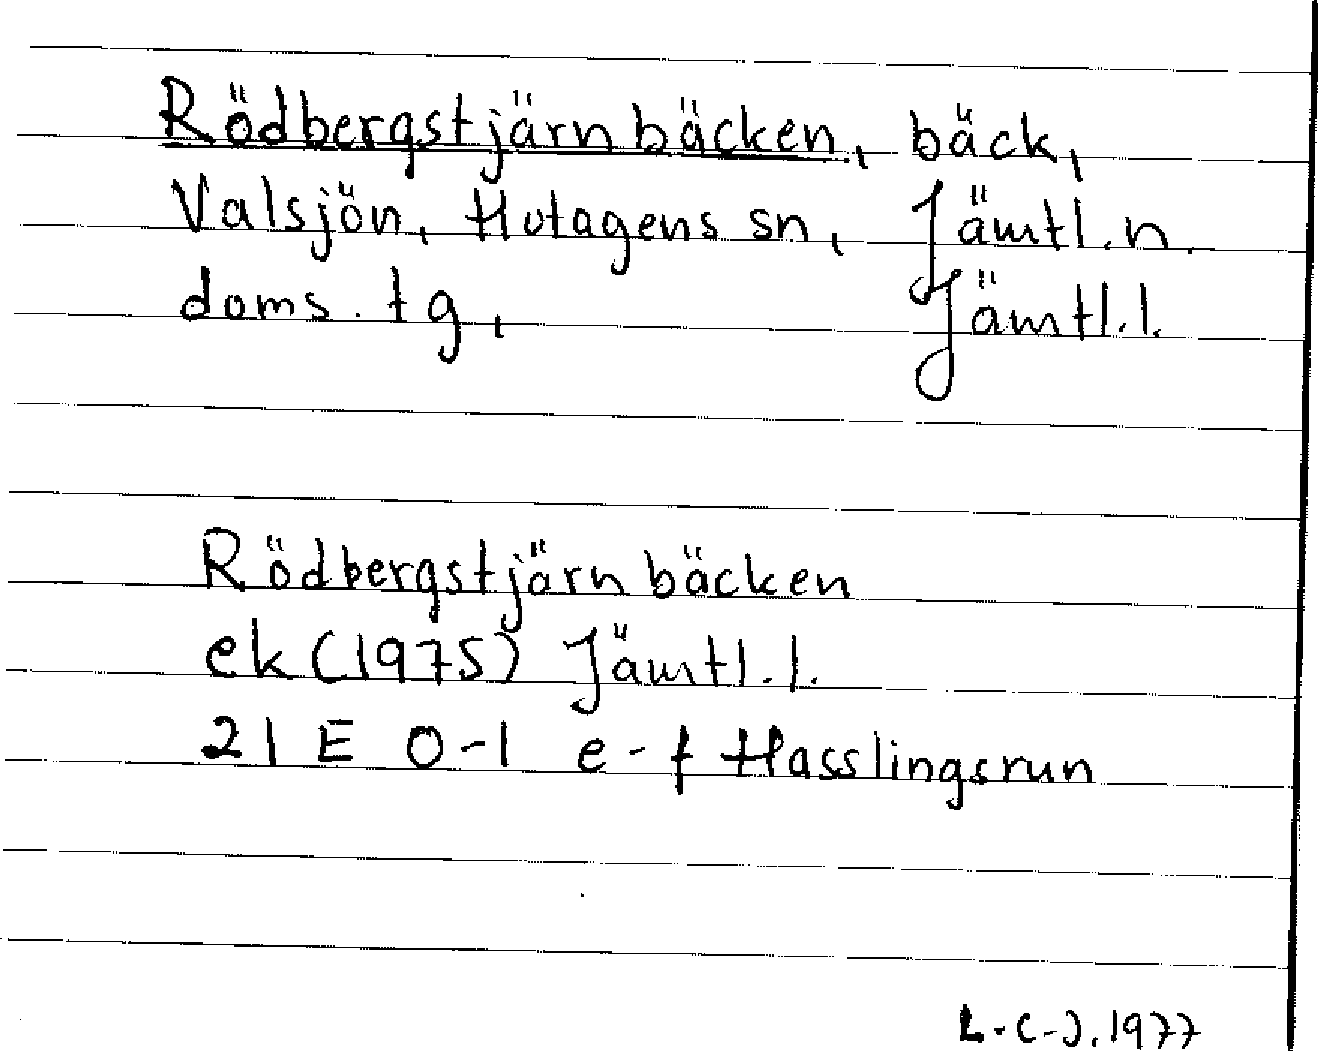 Rödbergstjärnbäcken, bäck,
Valsjön, Hotagens sn, Jämtl. n.
doms. tg, Jämtl. l.
Rödbergstjärnbäcken
ek (1975) Jämtl. l.
21 E 0-1 e-f Hasslingsrun
L-C-J. 1977